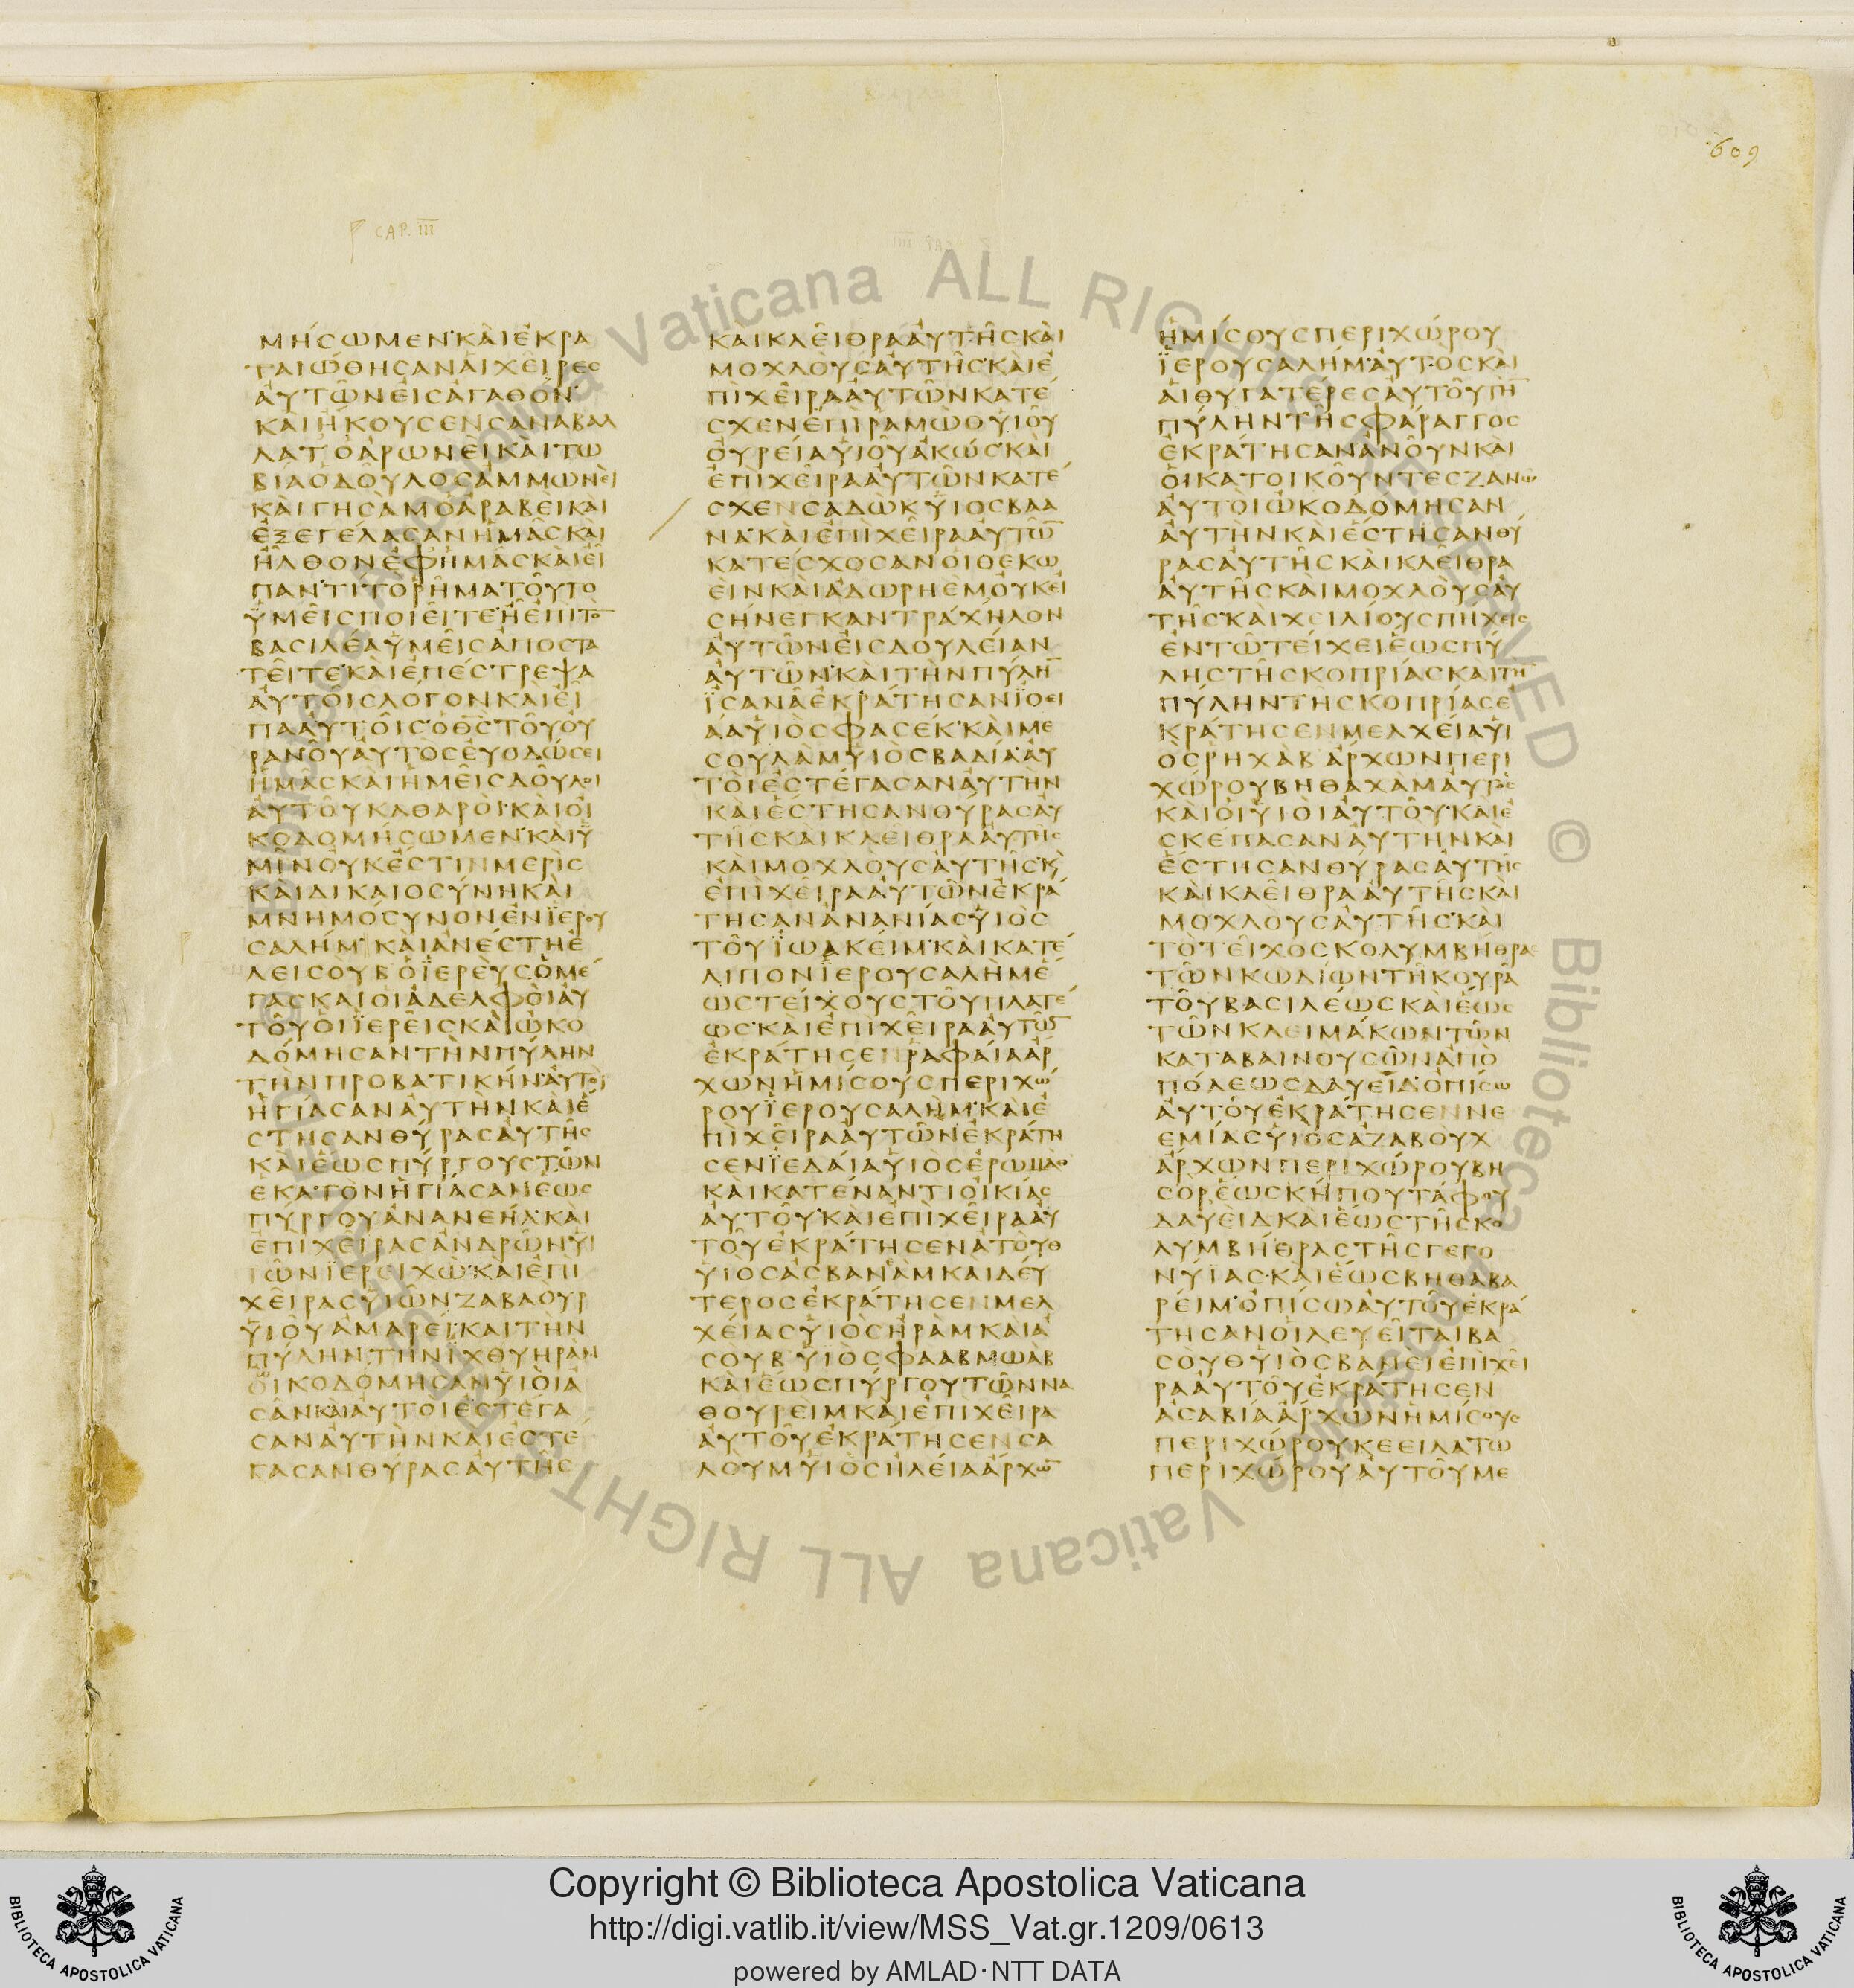 609
CAP. III
ΜΉΣΩΜΕΝ·ΚΑῚἘΚΡΑ
ΤΑΙΏΘΗΣΑΝΑἹΧΕῖΡΕΣ
ΑΥ̓ΤΩ͂ΝΕἸΣἈΓΑΘΌΝ·
ΚΑῚἬΚΟΥΣΕΝΣΑΝΑΒΑΛ
ΛΑΤὉἈΡΩΝΕῚΚΑῚΤΩ
ΒΙΑὉΔΟῦΛΟΣἈΜΜΩΝΕῚ
ΚΑῚΓΗΣᾺΜὉἈΡΑΒΕῚΚΑῚ
ἘΞΕΓΈΛΑΣΑΝἩΜᾶΣΚΑῚ
ἮΛΘΟΝἘΦἩΜᾶΣΚΑῚΕἾ
ΠΑΝ·ΤΊΤΟΡῆΜΑΤΟῦΤΟ
ὙΜΕῖΣΠΟΙΕῖΤΕ·ἮἘΠῚΤΟ̅
ΒΑΣΙΛΈΑὙΜΕῖΣἈΠΟΣΤΑ
ΤΕῖΤΕ·ΚΑῚἘΠΈΣΤΡΕΨΑ
ΑΥ̓ΤΟῖΣΛΌΓΟΝΚΑῚΕἾ
ΠΑΑΥ̓ΤΟῖΣ·ὉΘ̅Σ̅ΤΟῦΟΥ̓
ΡΑΝΟῦΑΥ̓ΤῸΣΕΥ̓ΟΔΏΣΕΙ
ἩΜᾶΣΚΑῚἩΜΕῖΣΔΟῦΛΟΙ
ΑΥ̓ΤΟῦΚΑΘΑΡΟΊ·ΚΑῚΟἸ
ΚΟΔΟΜΉΣΩΜΕΝ·ΚΑῚὙ
ΜῖΝΟΥ̓ΚἜΣΤΙΝΜΕΡῚΣ
ΚΑῚΔΙΚΑΙΟΣΎΝΗΚΑῚ
ΜΝΗΜΌΣΥΝΟΝἘΝΪΕΡΟΥ
ΣΑΛΉΜ·ΚΑῚἈΝΈΣΤΗἘ
ΛΕΙΣΟῪΒὉΪΕΡΕῪΣὉΜΈ
ΓΑΣΚΑῚΟἹἈΔΕΛΦΟῚΑΥ̓
ΤΟῦΟἹΪΕΡΕῖΣΚΑῚᾨΚΟ
ΔΌΜΗΣΑΝΤῊΝΠΎΛΗΝ
ΤῊΝΠΡΟΒΑΤΙΚΉΝ·ΑΥ̓ΤΟῚ
ἩΓΊΑΣΑΝΑΥ̓ΤῊΝΚΑῚἜ
ΣΤΗΣΑΝΘΎΡΑΣΑΥ̓ΤῆΣ
ΚΑῚἝΩΣΠΎΡΓΟΥΣΤῶΝ
ἙΚΑΤῸΝἩΓΊΑΣΑΝἝΩΣ
ΠΎΡΓΟΥἈΝΑΝΕΉΛ·ΚΑῚ
ἘΠῚΧΕῖΡΑΣἈΝΔΡῶΝΥἹ
ῶΝΪΕΡΕΙΧΏ·ΚΑῚἘΠῚ
ΧΕῖΡΑΣΥἹῶΝΖΑΒΑΟΥΡ
ΥἹΟΥ͂ἈΜΑΡΕΊ·ΚΑῚΤῊΝ
ΠΎΛΗΝΤῊΝἸΧΘΥΗΡᾺΝ
ΟἸΚΟΔΌΜΗΣΑΝΥἹΟῚΑ
ΣΑΝΚΑῚΑΥ̓ΤΟῚἘΣΤΈΓΑ
ΣΑΝΑΥ̓ΤῊΝΚΑῚἘΣΤΈ
ΓΑΣΑΝΘΎΡΑΣΑΥ̓ΤῆΣ
ΚΑῚΚΛΕῖΘΡΑΑΥ̓ΤῆΣΚΑῚ
ΜΟΧΛΟῪΣΑΥ̓ΤῆΣ·ΚΑῚἘ
ΠῚΧΕῖΡΑΑΥ̓ΤῶΝΚΑΤΈ
ΣΧΕΝἘΠῚΡΑΜῺΘΥἹΟῦ
ΟΥ̓ΡΕΊΑΥἹΟῦἈΚΏΣ·ΚΑῚ
ἘΠῚΧΕῖΡΑΑΥ̓ΤῶΝΚΑΤΈ
ΣΧΕΝΣΑΔῺΚΥἹΟΣΒΑΑ
ΝᾺ·ΚΑῚἘΠῚΧΕῖΡΑΑΥ̓ΤΩ̅
ΚΑΤΈΣΧΟΣΑΝΟἹΘΕΚΩ
ΕῚΝΚΑῚἈΔΩΡΗῈΜΟΥ̓ΚΕἸ
ΣΉΝΕΓΚΑΝΤΡΆΧΗΛΟΝ
ΑΥ̓ΤῶΝΕἸΣΔΟΥΛΕΊΑΝ
ΑΥ̓ΤῶΝ·ΚΑῚΤῊΝΠΎΛΗ̅
ΪΣΑΝᾶἘΚΡΆΤΗΣΑΝΪΟΕΙ
ΆΑΥἹῸΣΦΑΣΕΚ·ΚΑῚΜΕ
ΣΟΥΛᾺΜΥἹῸΣΒΑΔΊΑ·ΑΥ̓
ΤΟῚἘΣΤΈΓΑΣΑΝΑΥ̓ΤῊΝ
ΚΑῚἜΣΤΗΣΑΝΘΎΡΑΣΑΥ̓
ΤῆΣΚΑῚΚΛΕῖΘΡΑΑΥ̓ΤῆΣ
ΚΑῚΜΟΧΛΟῪΣΑΥ̓ΤῆΣ·Κ̀
ἘΠῚΧΕῖΡΑΑΥ̓ΤῶΝἘΚΡΆ
ΤΗΣΑΝἈΝΑΝΊΑΣΥἹῸΣ
ΤΟῦΪΩΑΚΕΊΜ·ΚΑῚΚΑΤΈ
ΛΙΠΟΝΪΕΡΟΥΣΑΛῊΜἝ
ΩΣΤΕΊΧΟΥΣΤΟῦΠΛΑΤΈ
ΩΣ·ΚΑῚἘΠῚΧΕῖΡΑΑΥ̓ΤΩ̅
ἘΚΡΆΤΗΣΕΝΡΑΦΑΊΑἌΡ
ΧΩΝἩΜΊΣΟΥΣΠΕΡΙΧΏ
ΡΟΥΪΕΡΟΥΣΑΛΉΜ·ΚΑῚἘ
ΠῚΧΕῖΡΑΑΥ̓ΤῶΝἘΚΡΆΤΗ
ΣΕΝΪΕΔΑΊΑΥἹῸΣἘΡΩΜΑΦ
ΚΑῚΚΑΤΈΝΑΝΤΙΟἸΚΊΑΣ
ΑΥ̓ΤΟῦ·ΚΑῚἘΠῚΧΕῖΡΑΑΥ̓
ΤΟῦἘΚΡΆΤΗΣΕΝἈΤΟῪΘ
ΥἹῸΣἈΣΒΑΝᾺΜΚΑῚΔΕΎ
ΤΕΡΟΣἘΚΡΆΤΗΣΕΝΜΕΛ
ΧΕΊΑΣΥἹῸΣἩΡᾺΜΚΑῚἈ
ΣΟῪΒΥἹῸΣΦΑΑΒΜΩᾺΒ
ΚΑῚἝΩΣΠΎΡΓΟΥΤῶΝΝΑ
ΘΟΥΡΕΙΜΚΑῚἘΠῚΧΕῖΡΑ
ΑΥ̓ΤΟῦἘΚΡΆΤΗΣΕΝΣΑ
ΛΟΥΜΥἹῸΣἩΛΕΊΑἌΡΧΩ̅
ἩΜΊΣΟΥΣΠΕΡΙΧΏΡΟΥ
ΪΕΡΟΥΣΑΛΉΜ·ΑΥ̓ΤῸΣΚΑῚ
ΑἹΘΥΓΑΤΈΡΕΣΑΥ̓ΤΟῦΤΗ̅
ΠΎΛΗΝΤῆΣΦΆΡΑΓΓΟΣ
ἘΚΡΆΤΗΣΑΝἈΝΟῦΝΚΑῚ
ΟἹΚΑΤΟΙΚΟῦΝΤΕΣΖΑΝΩ
ΑΥ̓ΤΟῚᾨΚΟΔΌΜΗΣΑΝ
ΑΥ̓ΤῊΝΚΑῚἜΣΤΗΣΑΝΘΎ
ΡΑΣΑΥ̓ΤῆΣΚΑῚΚΛΕῖΘΡΑ
ΑΥ̓ΤῆΣΚΑῚΜΟΧΛΟῪΣΑΥ̓
ΤῆΣ·ΚΑῚΧΕΙΛΊΟΥΣΠΉΧΕΙΣ
ἘΝΤῶΤΕΊΧΕΙἝΩΣΠΎ
ΛΗΣΤῆΣΚΟΠΡΊΑΣΚΑῚΤΗ̅
ΠΎΛΗΝΤῆΣΚΟΠΡΊΑΣἘ
ΚΡΆΤΗΣΕΝΜΕΛΧΕΊΑΥἹ
ῸΣΡΗΧᾺΒἌΡΧΩΝΠΕΡΙ
ΧΏΡΟΥΒΗΘΑΧᾺΜΑΥ̓ΤῸΣ
ΚΑῚΟἹΥἹΟῚΑΥ̓ΤΟῦ·ΚΑῚἘ
ΣΚΈΠΑΣΑΝΑΥ̓ΤῊΝΚΑῚ
ἜΣΤΗΣΑΝΘΎΡΑΣΑΥ̓ΤῆΣ
ΚΑῚΚΛΕῖΘΡΑΑΥ̓ΤῆΣΚΑῚ
ΜΟΧΛΟῪΣΑΥ̓ΤῆΣ·ΚΑῚ
ΤῸΤΕῖΧΟΣΚΟΛΥΜΒΉΘΡΑΣ
ΤῶΝΚΩΔΊΩΝΤῆΚΟΥΡᾶ
ΤΟῦΒΑΣΙΛΈΩΣΚΑῚἝΩΣ
ΤῶΝΚΛΕΙΜΆΚΩΝΤῶΝ
ΚΑΤΑΒΑΙΝΟΥΣῶΝἈΠῸ
ΠΌΛΕΩΣΔΑΥΕΊΔ·ὈΠΊΣΩ
ΑΥ̓ΤΟῦἘΚΡΆΤΗΣΕΝΝΕ
ΕΜΊΑΣΥἹῸΣἈΖΑΒΟῪΧ
ἌΡΧΩΝΠΕΡΙΧΏΡΟΥΒΗ
ΣῸΡἝΩΣΚΉΠΟΥΤΆΦΟΥ
ΔΑΥΕῚΔΚΑῚἝΩΣΤῆΣΚΟ
ΛΥΜΒΉΘΡΑΣΤῆΣΓΕΓΟ
ΝΥΪΑΣ·ΚΑῚἝΩΣΒΗΘΑΒΑ
ΡΕΊΜ·ὈΠΊΣΩΑΥ̓ΤΟῦἘΚΡΆ
ΤΗΣΑΝΟἹΛΕΥΕῖΤΑΙΒΑ
ΣΟῪΘΥἹῸΣΒΑΝΕΙἘΠῚΧΕῖ
ΡΑΑΥ̓ΤΟῦἘΚΡΆΤΗΣΕΝ
ἈΣΑΒΊΑἌΡΧΩΝἩΜΊΣΟΥΣ
ΠΕΡΙΧΏΡΟΥΚΕΕΙΛΑΤΩ
ΠΕΡΙΧΏΡΟΥΑΥ̓ΤΟῦΜΕ
Vaticana ALL RIGHTS RESERVED © Biblioteca Apostolica Vaticana ALL RIGHT
Copyright © Biblioteca Apostolica Vaticana
http://digi.vatlib.it/view/MSS_Vat.gr.1209/0613
powered by AMLAD·NTT DATA
BIBLIOTECA APOSTOLICA VATICANA
BIBLIOTECA APOSTOLICA VATICANA